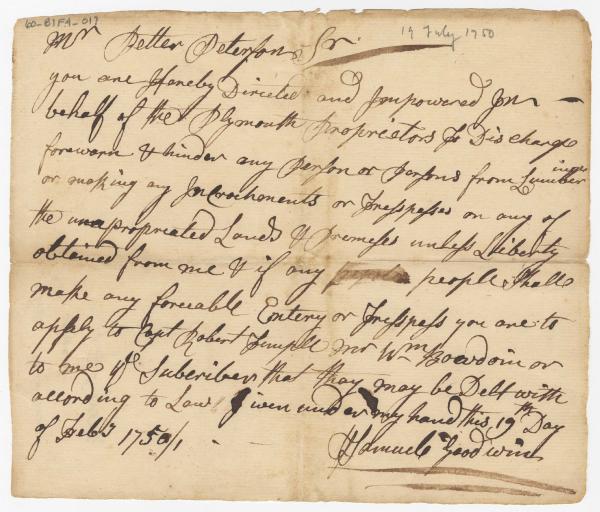 60-B1FA-017
19 July 1750
Mr Petter Peterson Sr
you are Hereby Directed and Impowered In
behalf of the Plymouth Proprietors to Discharge
forewarn & hinder any Person or Persons from Lumbering
or making any Incrochments or Tresspesses on any of
the unapropriated Lands & Premeses unless Lliberty
obtained from me & if any people Shall
make any forceable Entery or Tresspass you are to
apply to Capt Robert Temple Mr Wm Bowdoin or
to me ye Subcriber that thay may be Delt with
according to Law Given under my hand this 19th Day
of Feby 1750/1
Samuel Goodwin